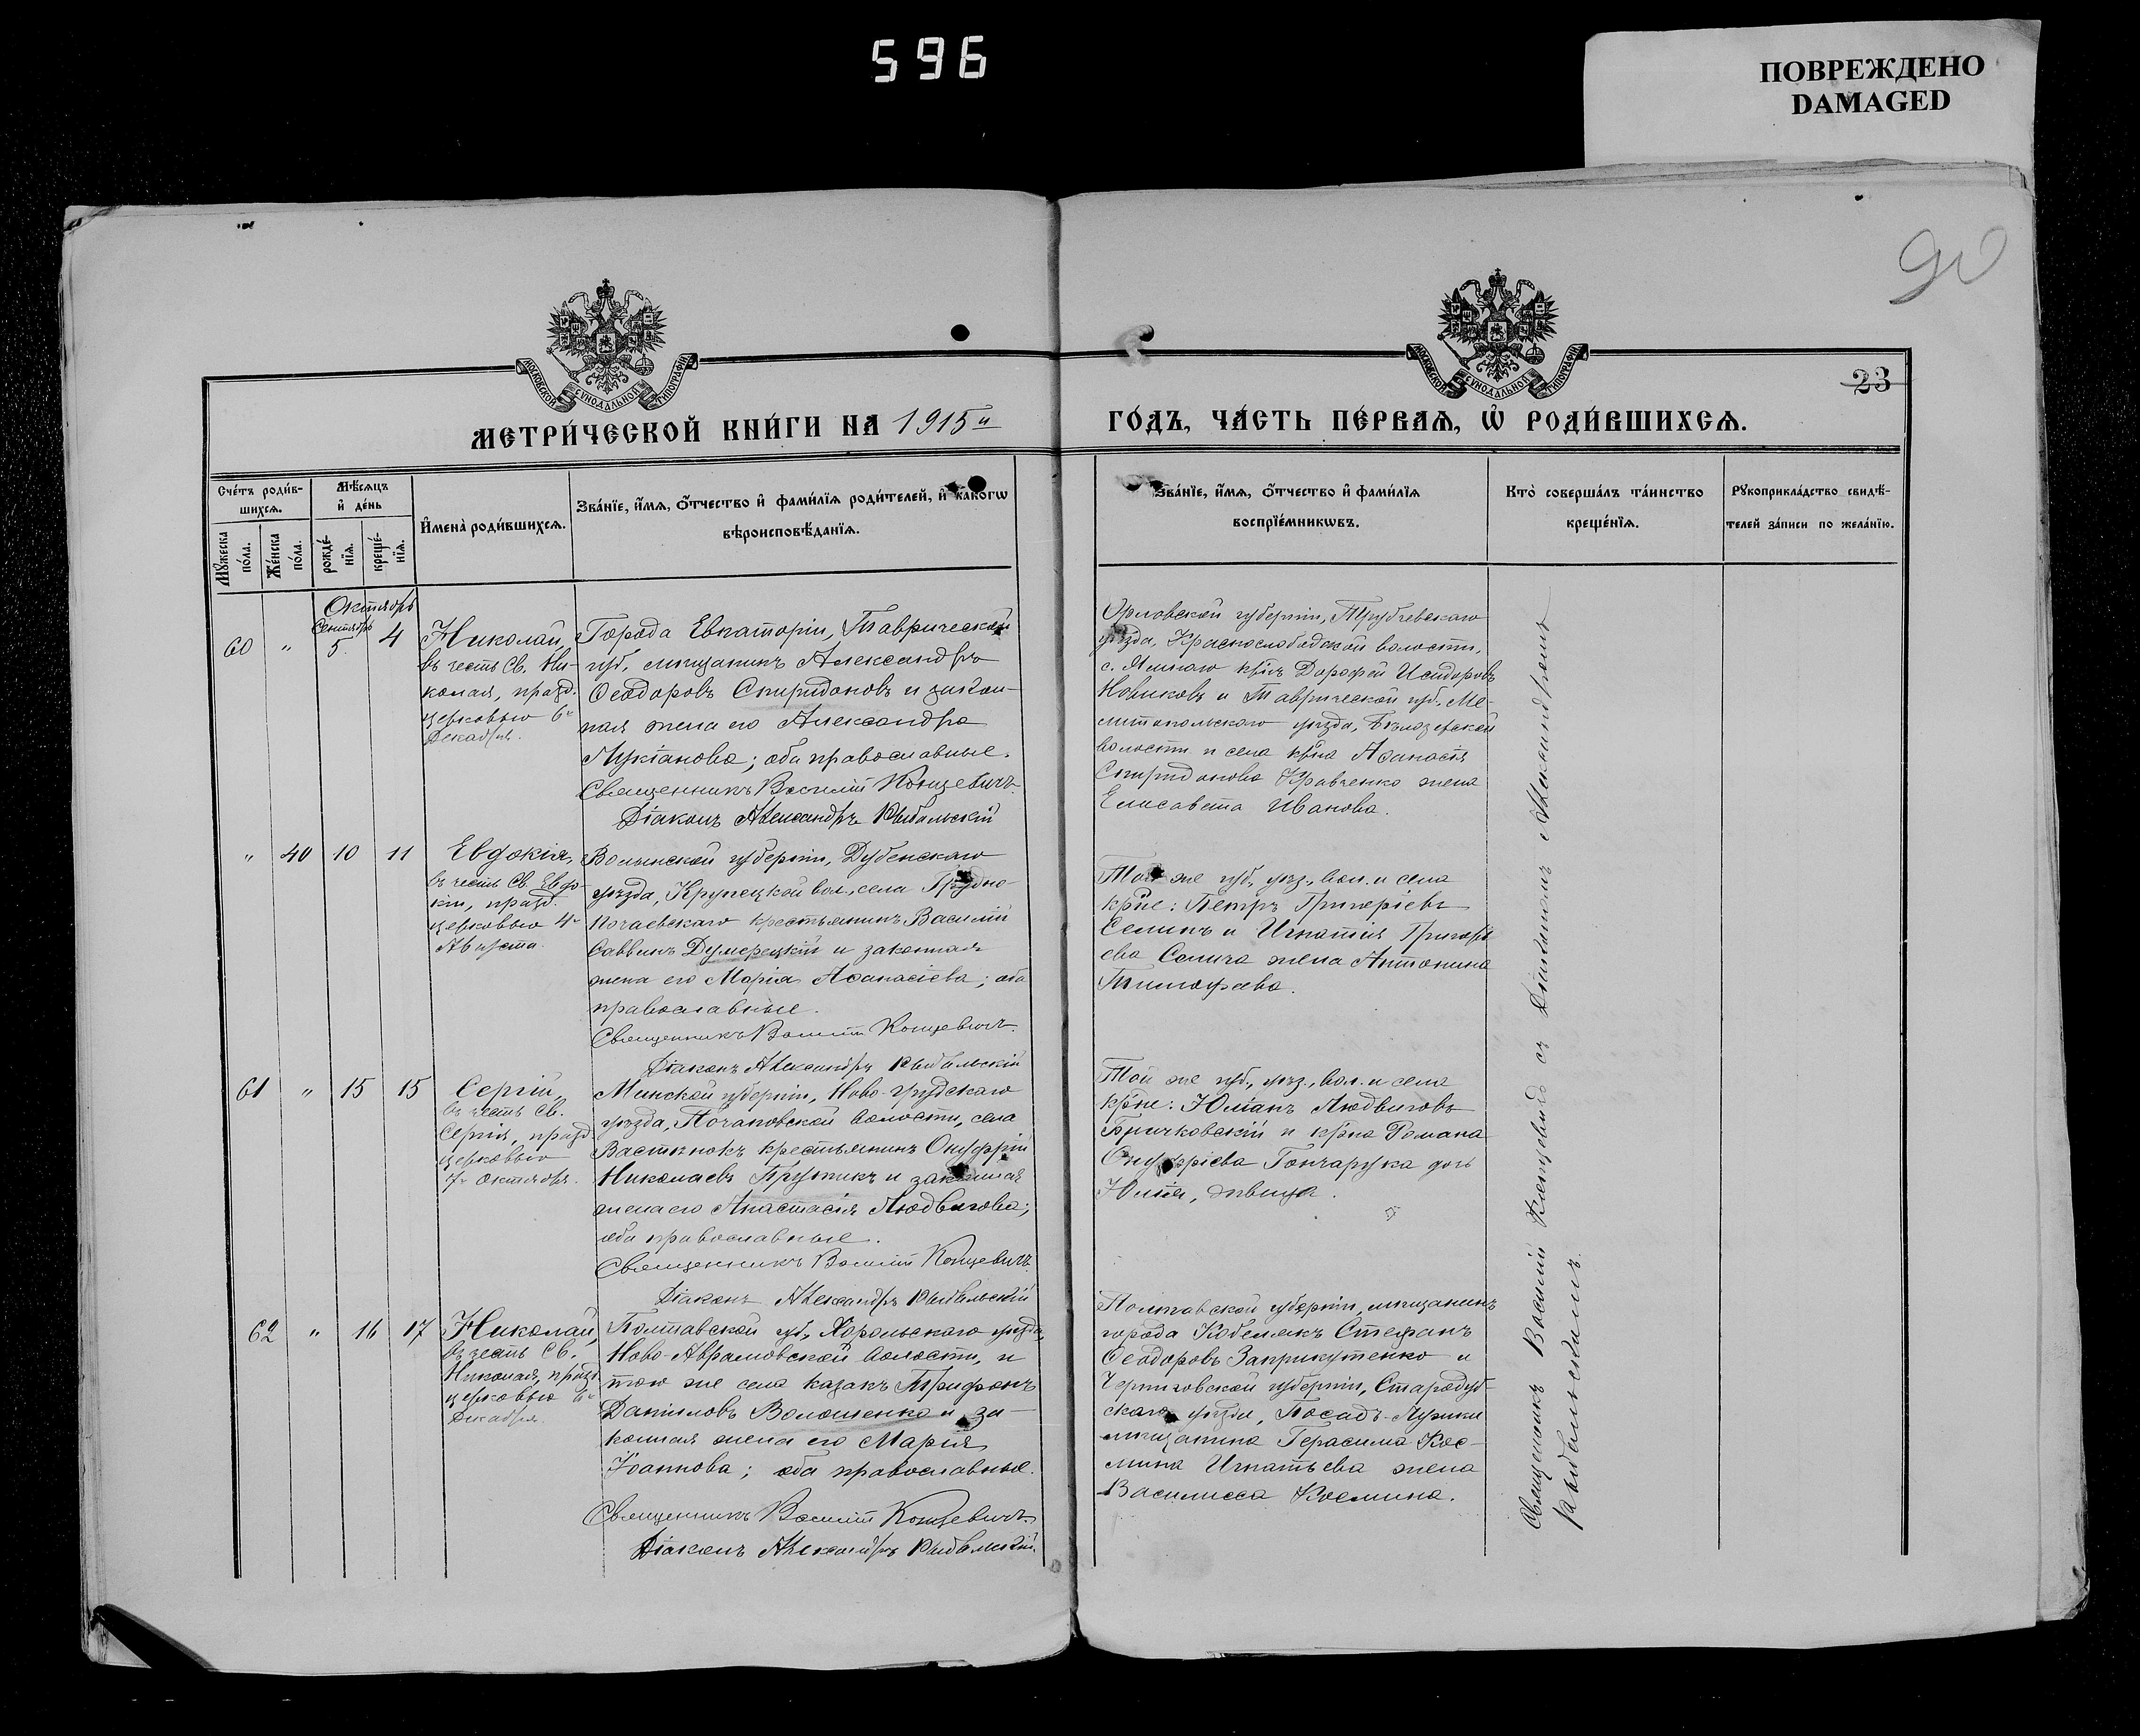 596
ПОВРЕЖДЕНО
DAMAGED
90
23
МОСКОВСКОЙ СѴНОДАЛЬНОЙ ТИПОГРАФІИ
МОСКОВСКОЙ СѴНОДАЛЬНОЙ ТИПОГРАФІИ
МЕТРИ́ЧЕСКОЙ КНИ́ГИ НА 1915й
ГО́ДЪ, ЧА́СТЬ ПЕ́РВАѦ, Ѡ҆ РОДИ́ВШИХСѦ.
Сче́тъ роди́в-
шихсѧ.
Мꙋ́жеска по́ла.
Же́нска по́ла.
Мѣ́сѧцъ
и҆ де́нь
рожде́-
нїѧ.
креще́-
нїѧ.
И҆мена̀ роди́вшихсѧ.
Зва́нїе, и҆́мѧ, ѻ҆́тчество и҆ фами́лїѧ роди́телей, и҆ како́гѡ
вѣроисповѣ́данїѧ.
Зва́нїе, и҆́мѧ, ѻ҆́тчество и҆ фами́лїѧ
воспрїе́мникѡвъ.
Кто̀ соверша́лъ та́инство
креще́нїѧ.
Рꙋкоприкла́дство свидѣ́-
телей за́писи по жела́нїю.
Октябрь
Сентябрь
60 " 5. 4
Николай,
въ честь Св. Ни-
колая, празд.
церковью 6го
Декабря.
Города Евпаторіи, Таврической
губ. мѣщанинъ Александръ
Ѳеодоровъ Спиридоновъ и закон-
ная жена его Александра
Лукіанова; оба православные.
Священникъ Василій Концевичъ.
Діаконъ Александръ Рыбальскій
Орловской губерніи, Трубчевскаго
уѣзда, Краснослободской волости,
с. Ямнаго кр-нъ Дорофей Исидоровъ
Новиковъ и Таврической губ. Ме-
литопольскаго уѣзда, Бѣлозерской
волости и села кр-на Аѳанасія
Спиридонова Кравченко жена
Елисавета Иванова.
" 40 10 11
Евдокія,
въ честь Св. Евдо-
кіи, празд.
церковью 4го
Августа.
Волынской губерніи, Дубенскаго
уѣзда, Крупецкой вол., села
Почаевскаго крестьянинъ Василій
Саввинъ и законная
жена его Марія Аѳанасіева; оба
православные.
Священникъ Василій Концевичъ.
Діаконъ Александръ Рыбальскій
Той же губ., уѣз., вол. и села
кр-не: Петръ Григоріевъ
и Игнатія Григорі-
ева жена Антонина
Тимофеева.
61 " 15 15
Сергій,
въ честь Св.
Сергія, празд.
церковью
7го Октября.
Минской губерніи, Ново-грудскаго
уѣзда, Почаповской волости, села
крестьянинъ Онуфрій
Николаевъ и законная
жена его Анастасія Людвигова;
оба православные.
Священникъ Василій Концевичъ.
Діаконъ Александръ Рыбальскій
Той же губ., уѣз., вол. и села
кр-не: Юліанъ Людвиговъ
и кр-на Романа
Онуфріева Гончарука дочь
Юлія, дѣвица.
62 " 16 17
Николай,
въ честь Св.
Николая, празд.
церковью 6го
Декабря.
Полтавской губ., Хорольскаго уѣзда,
Ново-Аврамовской волости, и
того же села казакъ Трифонъ
Даниловъ Волошенко и за-
конная жена его Марія
Іоаннова; оба православные.
Священникъ Василій Концевичъ.
Діаконъ Александръ Рыбальскій.
Полтавской губерніи, мѣщанинъ
города Кобелякъ Стефанъ
Ѳеодоровъ и
Черниговской губерніи, Стародуб-
скаго уѣзда, Посадъ-Лужки
мѣщанина Герасима Кос-
мина Игнатьева жена
Василисса Космина.
Священникъ Василій Концевичъ съ Діакономъ Александромъ
Рыбальскимъ.